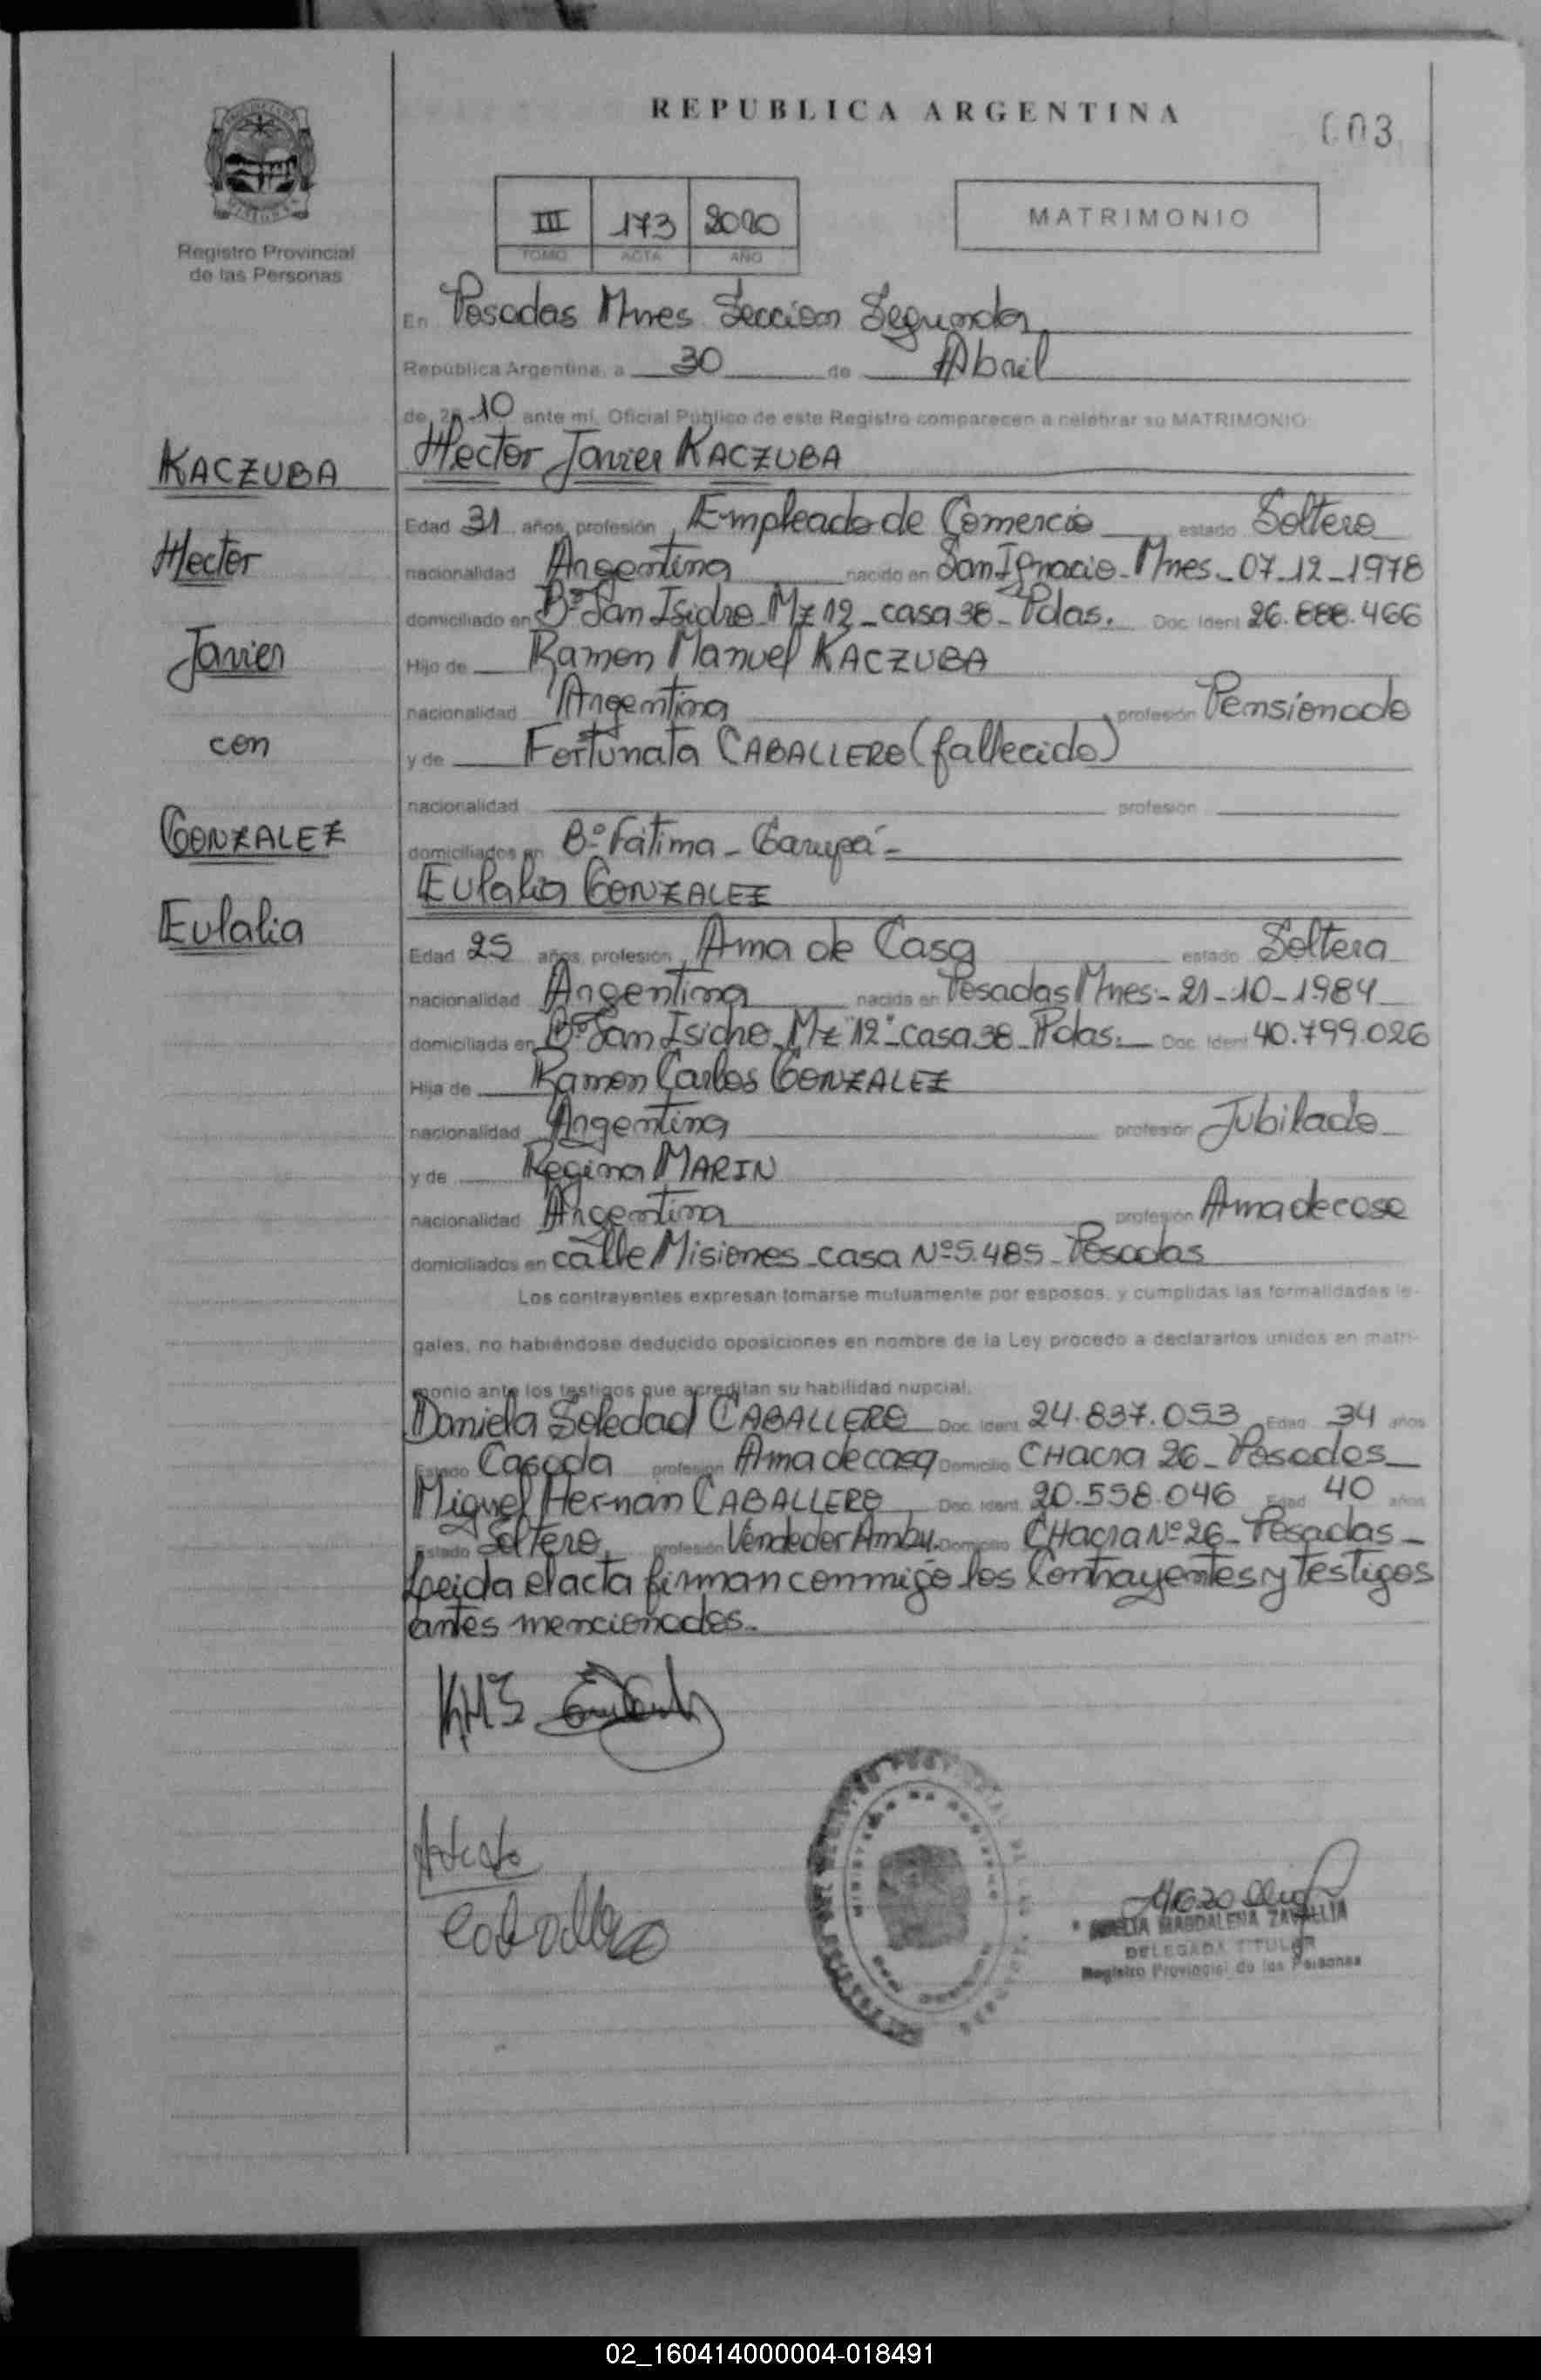 REPUBLICA ARGENTINA
003
Registro Provincial
de las Personas
III 173 2010
TOMO ACTA AÑO
MATRIMONIO
En Posadas Mnes Seccion Segunda
República Argentina, a 30 de Abril
de 20 10 ante mí, Oficial Público de este Registro comparecen a celebrar su MATRIMONIO:
Hector Javier KACZUBA
KACZUBA
Edad 31 años, profesión Empleado de Comercio estado Soltero
Hector
nacionalidad Argentina nacido en San Ignacio - Mnes - 07-12-1978
domiciliado en Bº San Isidro Mz 12 - casa 38 - Pdas. Doc. Ident 26.888.466
Javier
Hijo de Ramon Manuel KACZUBA
nacionalidad Argentina profesión Pensionado
con
y de Fortunata CABALLERO (fallecido)
nacionalidad profesión
GONZALEZ
domiciliados en Bº Fátima - Garupá -
Eulalia GONZALEZ
Eulalia
Edad 25 años, profesión Ama de Casa estado Soltera
nacionalidad Argentina nacida en Posadas Mnes - 21-10-1984
domiciliada en Bº San Isidro Mz "12" - casa 38 - Pdas. Doc. Ident 40.799.026
Hija de Ramon Carlos GONZALEZ
nacionalidad Argentina profesión Jubilado
y de Regina MARIN
nacionalidad Argentina profesión Ama de casa
domiciliados en calle Misiones - casa Nº 5.485 - Posadas
Los contrayentes expresan tomarse mutuamente por esposos, y cumplidas las formalidades le-
gales, no habiéndose deducido oposiciones en nombre de la Ley procedo a declararlos unidos en matri-
monio ante los testigos que acreditan su habilidad nupcial.
Daniela Soledad CABALLERO Doc. Ident. 24.837.053 Edad 34 años
Estado Casada profesión Ama de casa Domicilio CHacra 26 - Posadas
Miguel Hernan CABALLERO Doc. Ident. 20.558.046 Edad 40 años
Estado Soltero profesión Vendedor Ambu. Domicilio CHacra Nº 26 - Posadas -
Leida el acta firman conmigo los Contrayentes y Testigos
antes mencionados.
KHJ
Caballero
MAGDALENA ZAVALLIA
DELEGADA TITULAR
Registro Provincial de las Personas
02_160414000004-018491